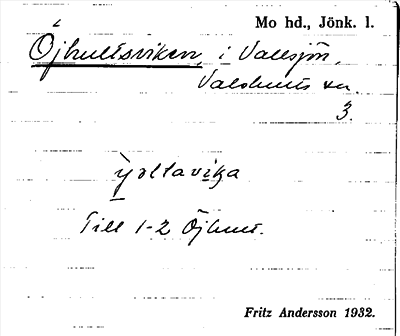 Mo hd., Jönk. l.
Öjhultsviken, i Vallsjön,
Valdshults sn.
3.
ỳoltavika
Till 1-2 Öjhult.
Fritz Andersson 1932.